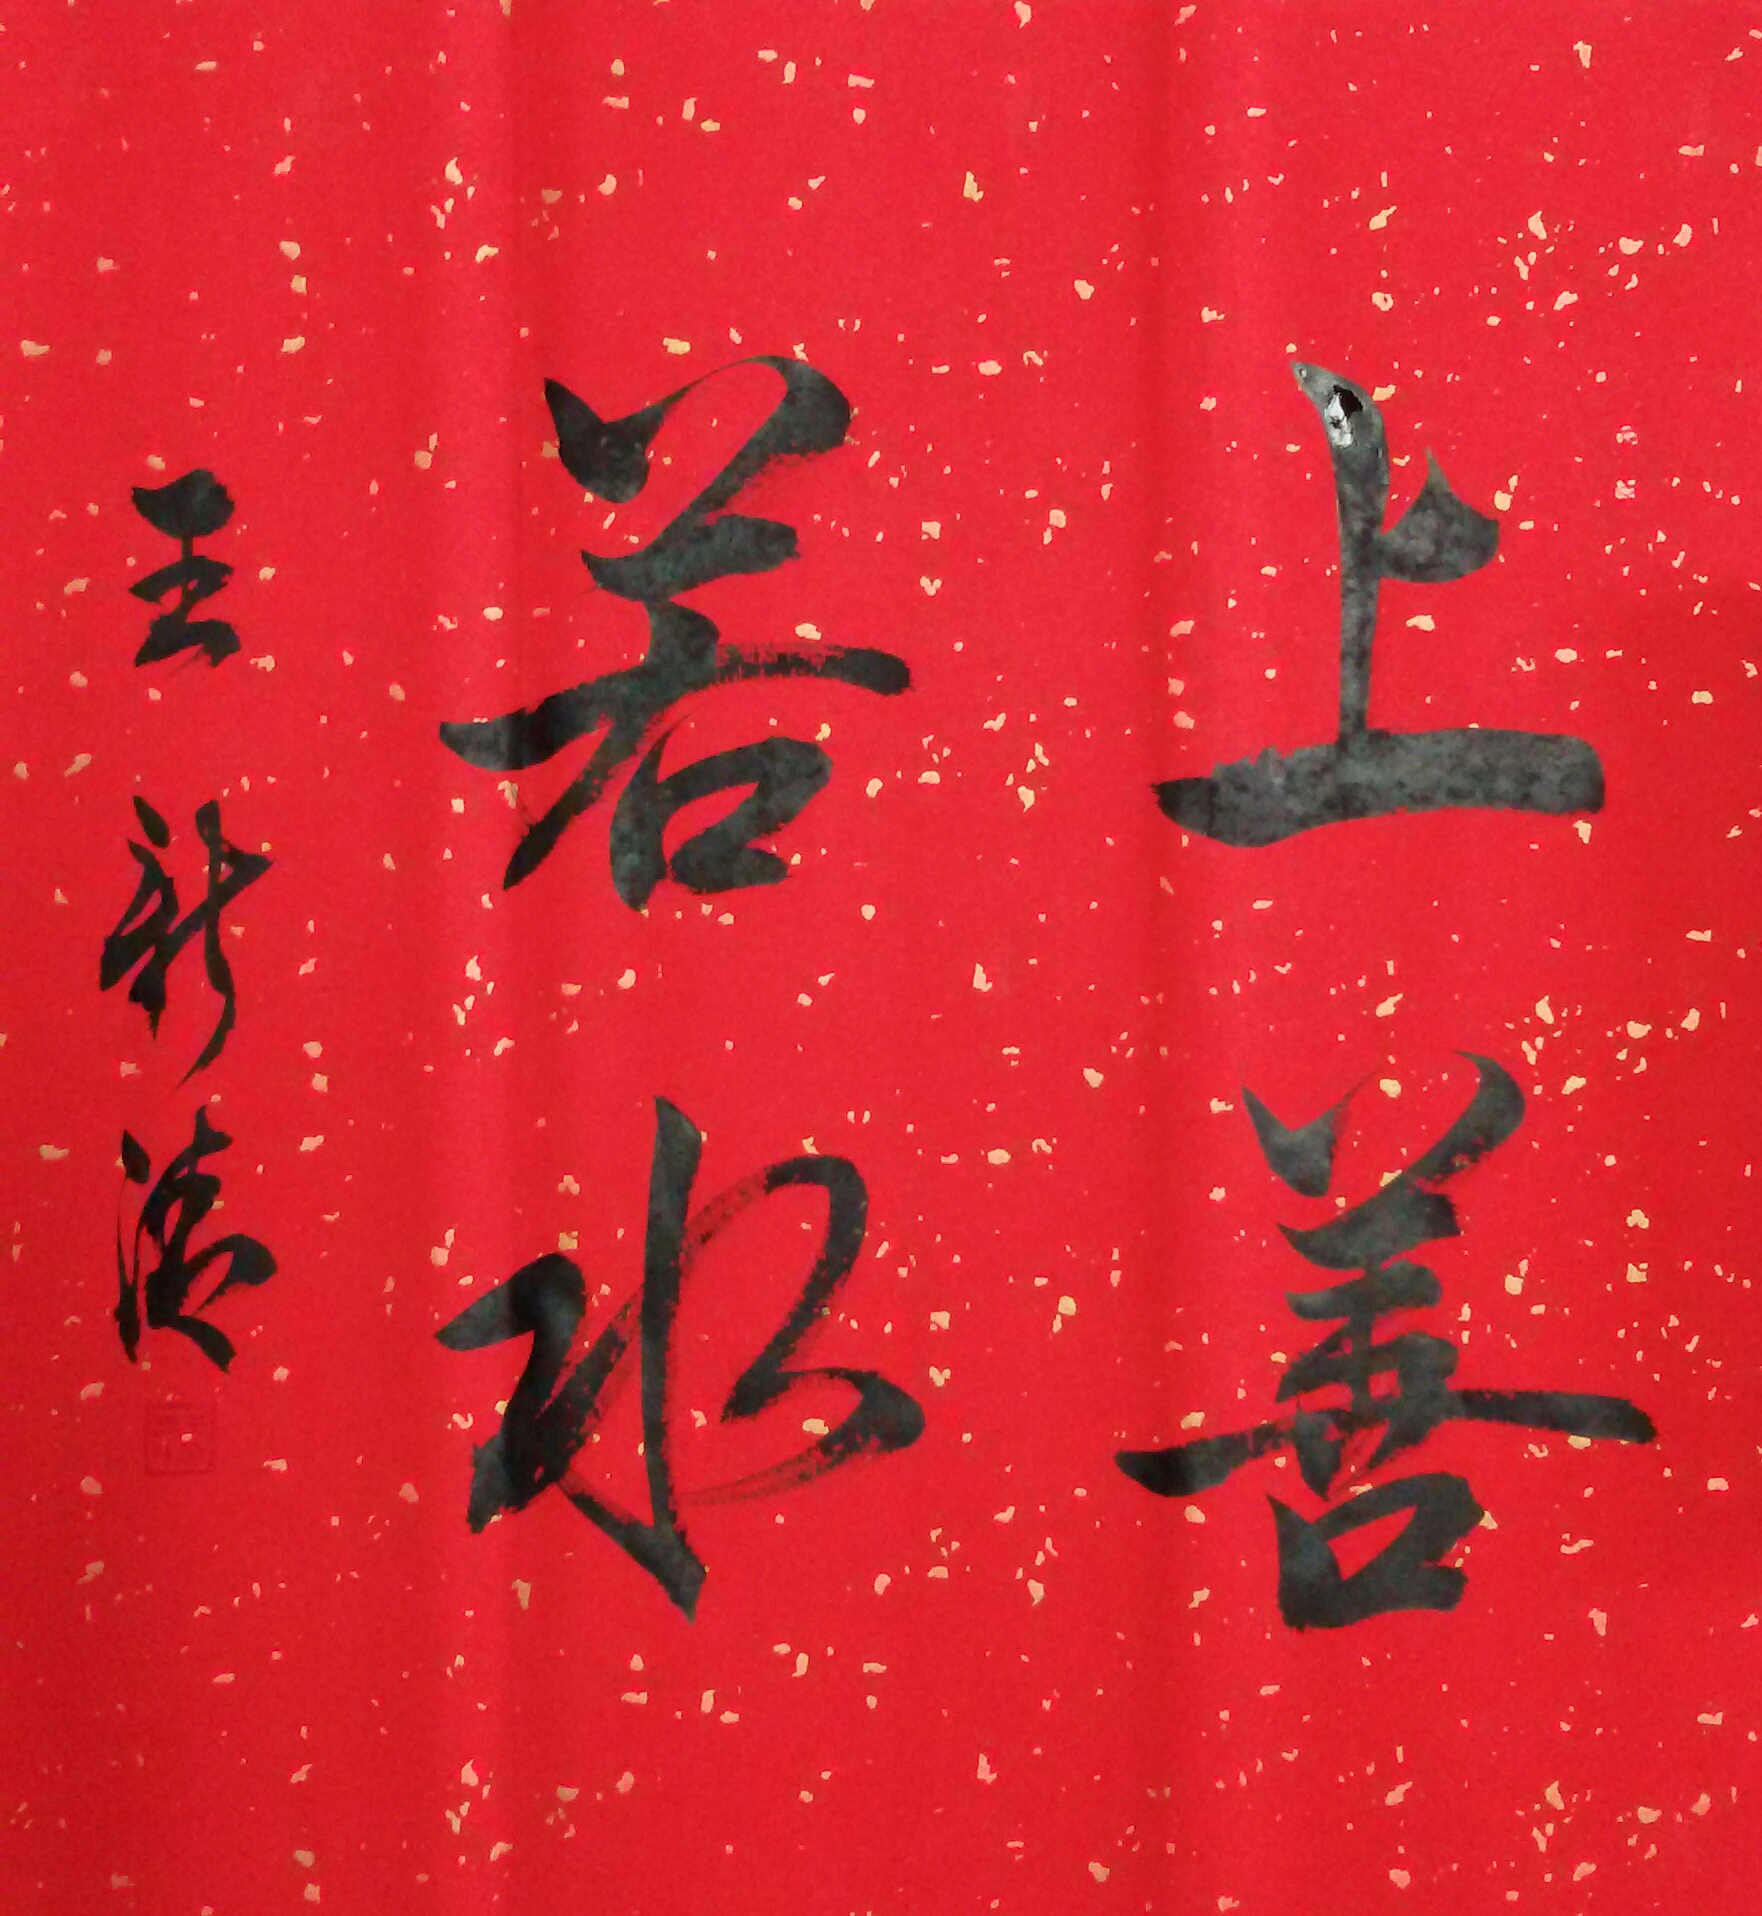 上善
若水
王新德